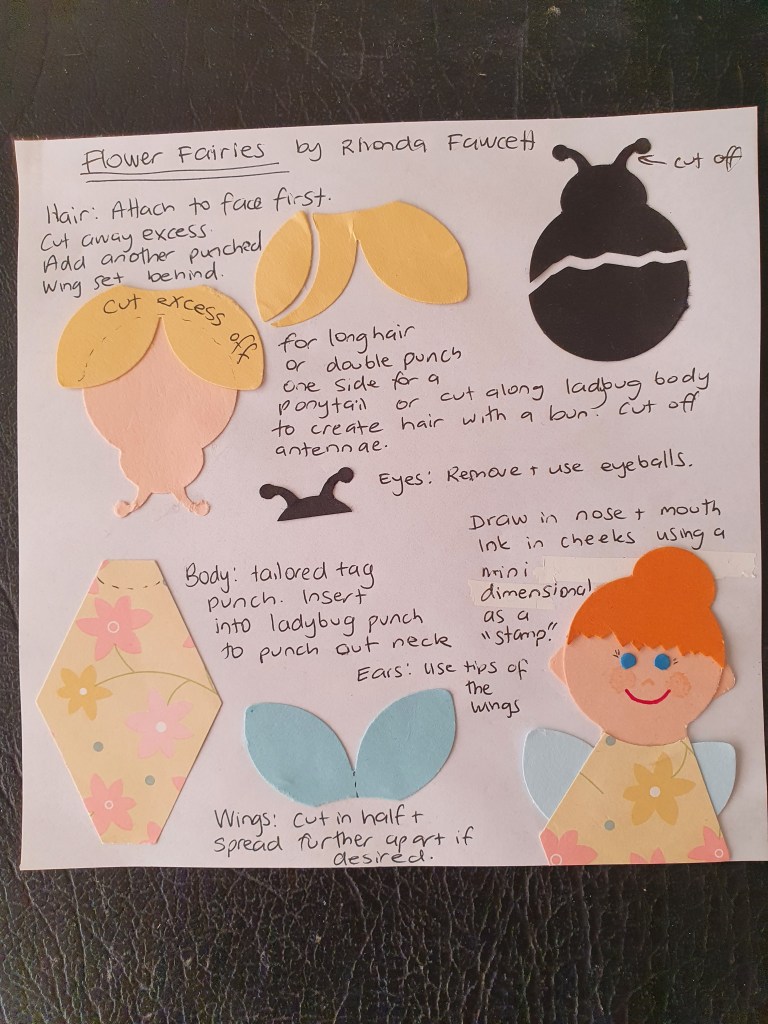 Flower Fairies by Rhonda Fawcett
cut off
Hair: Attach to face first.
Cut away excess.
Add another punched
wing set behind.
cut excess off
for long hair
or double punch
one side for a
ponytail or cut along ladybug body
to create hair with a bun. Cut off
antennae.
Eyes: Remove + use eyeballs.
Draw in nose + mouth
Ink in cheeks using a
mini
dimensional
as a
"stamp".
Body: tailored tag
punch. Insert
into ladybug punch
to punch out neck
Ears: Use tips of
the
wings
Wings: Cut in half +
spread further apart if
desired.